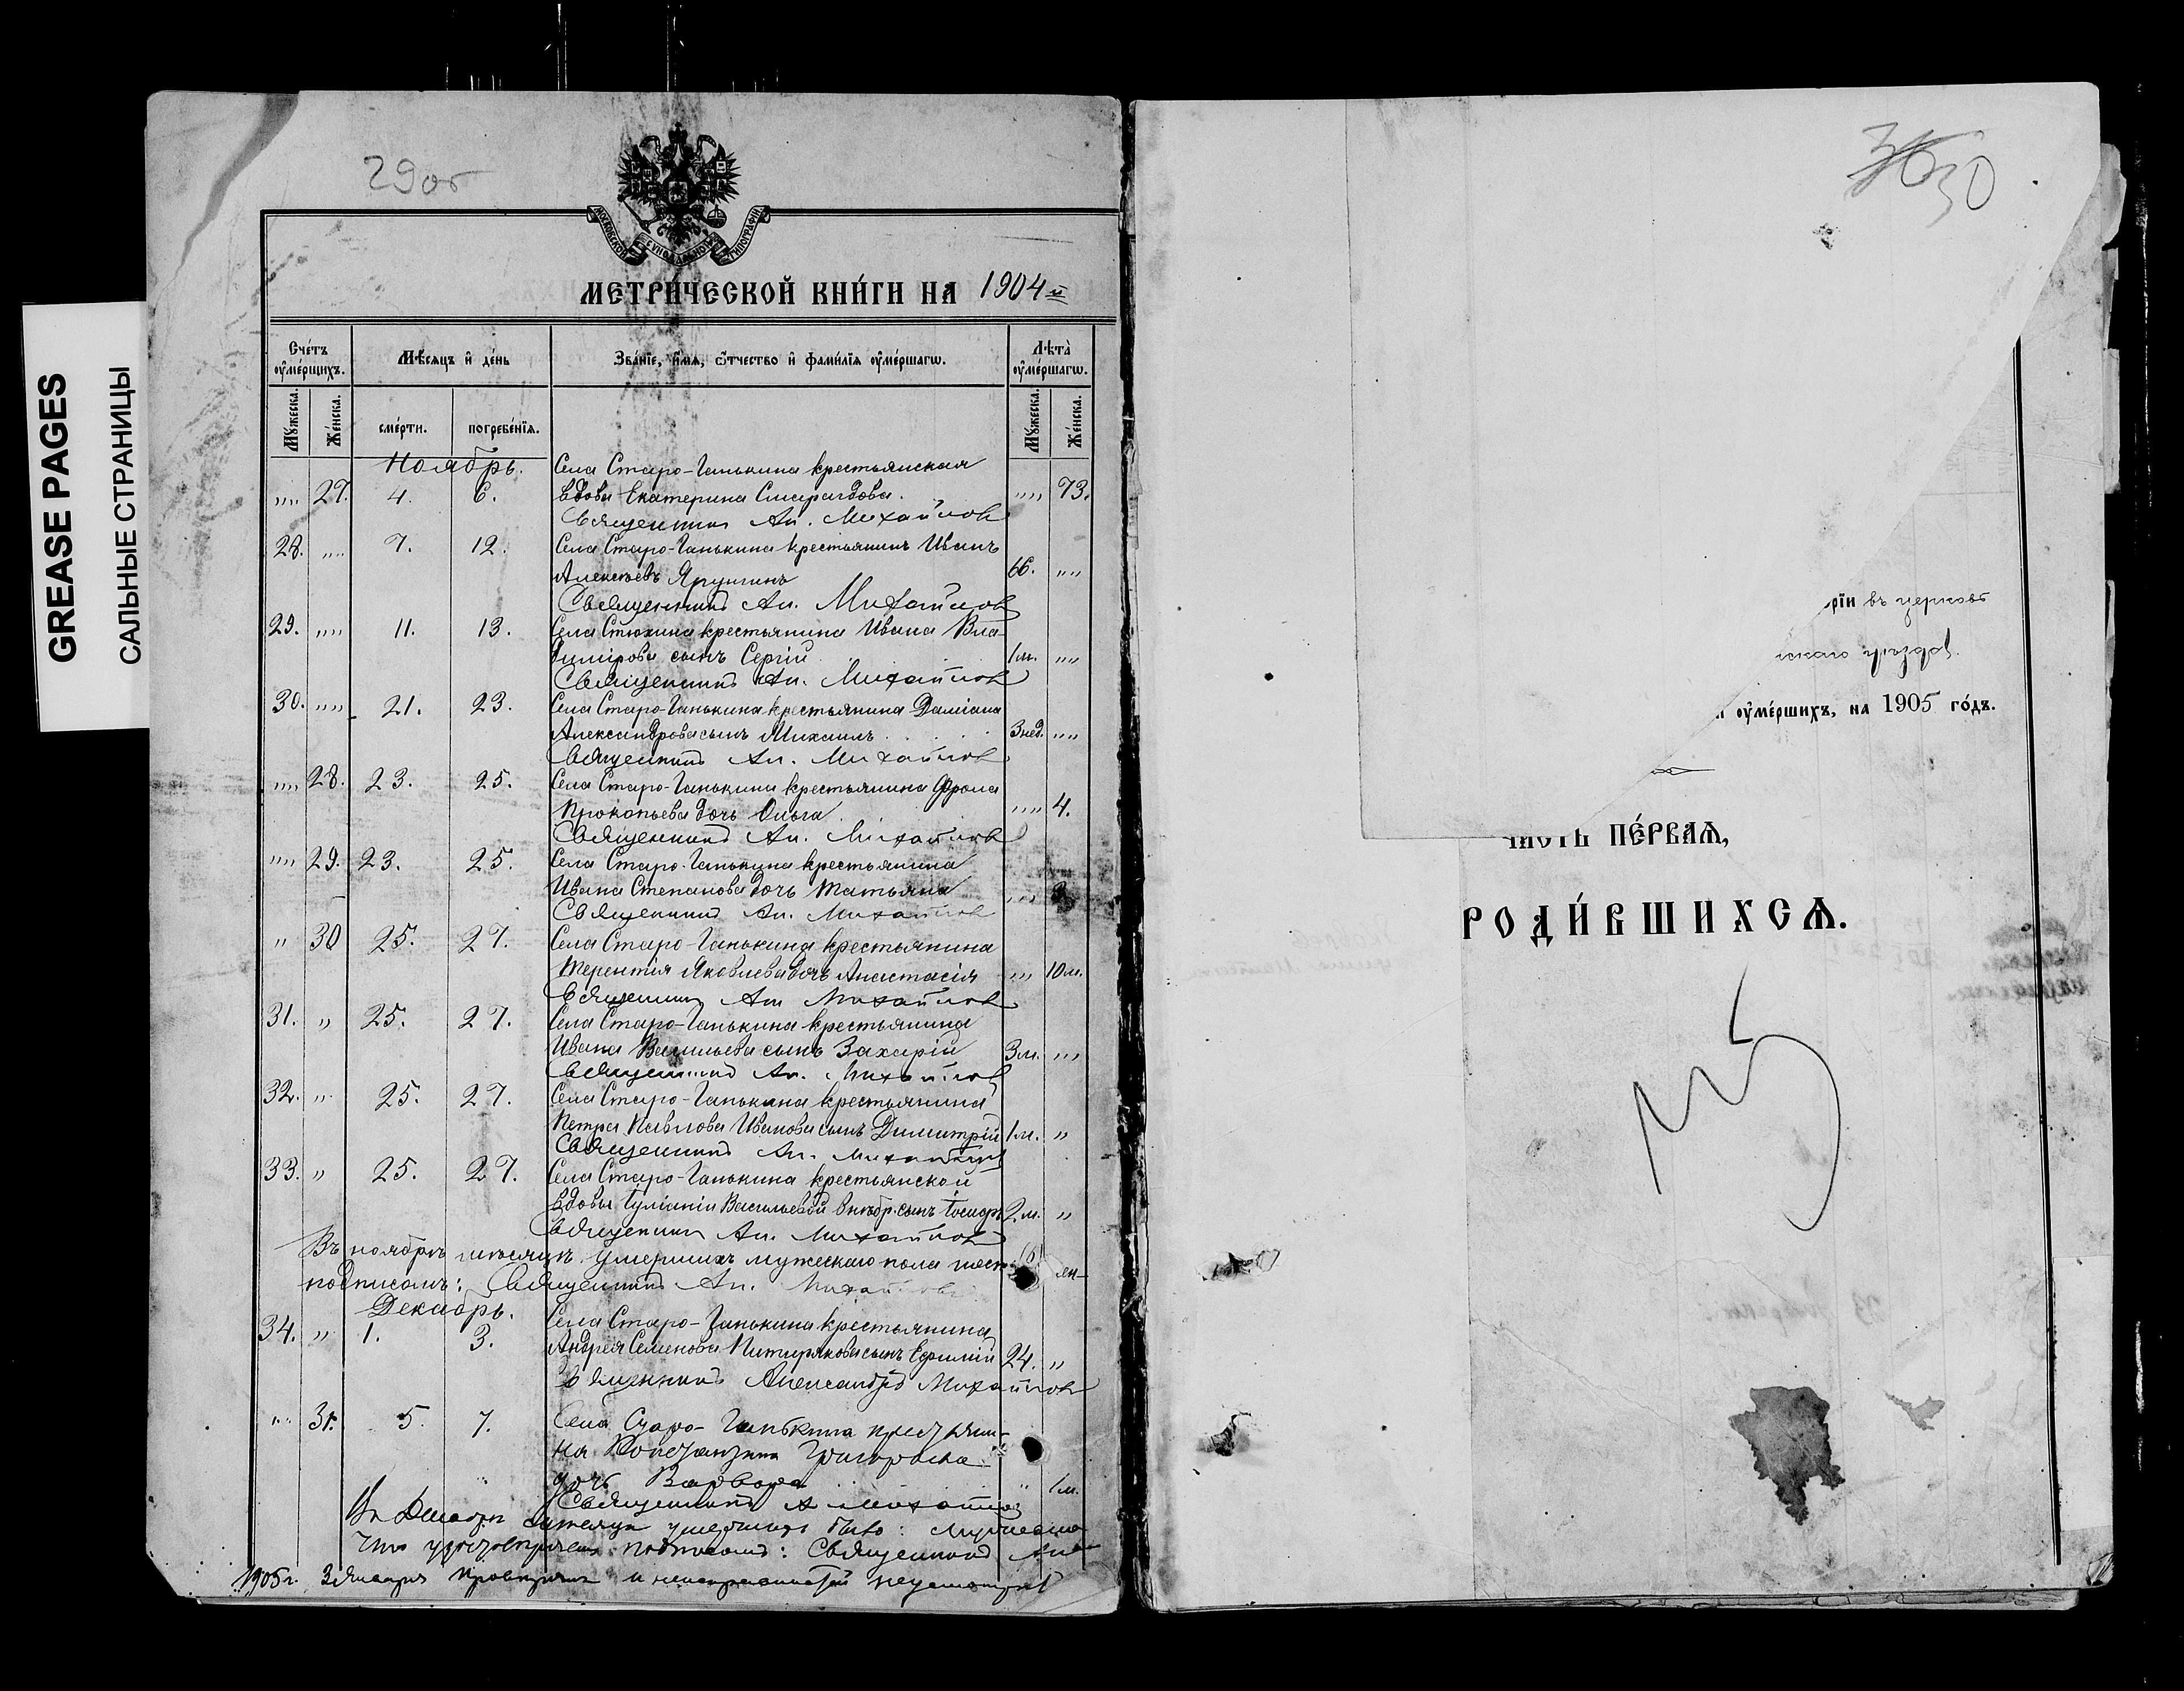 GREASE PAGES
САЛЬНЫЕ СТРАНИЦЫ
29об
МОСКОВСКОЙ СѴНОДАЛЬНОЙ ТИПОГРАФІИ
МЕТРИ́ЧЕСКОЙ КНИ́ГИ НА 1904 й
Сче́тъ оумершихъ.
Мѣсяцъ и де́нь
Зва́нїе, и́мя, ѻ́тчество и фами́лїя оуме́ршагѡ.
Лѣта̀ оуме́ршагѡ.
Му́жеска. Же́нска. сме́рти. погребе́нїя. Му́жеска. Же́нска.
Ноябрь. Села Старо-Ганькина крестьянская
"" 27. 4. 6. вдова Екатерина Смарагдова. "" 73.
Священникъ Ал. Михайловъ
28. "" 7. 12. Села Старо-Ганькина крестьянинъ Иванъ
Алексѣевъ 66. ""
Священникъ Ал. Михайловъ
29. "" 11. 13. Села Стюхина крестьянина Ивана Вла-
димірова сынъ Сергій 1 м. ""
Священникъ Ал. Михайловъ
30. "" 21. 23. Села Старо-Ганькина крестьянина Даміана
Александрова сынъ Михаилъ 3 нед. ""
Священникъ Ал. Михайловъ
"" 28. 23. 25. Села Старо-Ганькина крестьянина Фрола
Прокопьева дочь Ольга "" 4.
Священникъ Ал. Михайловъ
"" 29. 23. 25. Села Старо-Ганькина крестьянина
Ивана Степанова дочь Татьяна
Священникъ Ал. Михайловъ
" 30 25. 27. Села Старо-Ганькина крестьянина
Терентія Яковлева дочь Анастасія "" 10 м.
Священникъ Ал. Михайловъ
31. " 25. 27. Села Старо-Ганькина крестьянина
Ивана Васильева сынъ Захарій 3 м. ""
Священникъ Ал. Михайловъ
32. " 25. 27. Села Старо-Ганькина крестьянина
Петра Павлова Иванова сынъ Димитрій 1 м. "
Священникъ Ал. Михайловъ
33. " 25. 27. Села Старо-Ганькина крестьянской
вдовы Іуліаніи Васильевой внѣбр. сынъ 2 м. "
Священникъ Ал. Михайловъ
Въ ноябрѣ мѣсяцѣ умершихъ мужескаго пола
подписомъ: Священникъ Ал. Михайловъ
Декабрь. Села Старо-Ганькина крестьянина
34. " 1. 3. Андрея Семенова сынъ Ефимій 24. "
Священникъ Александръ Михайловъ
"" 31. 5. 7. Села Старо-Ганькина крестьяни-
на Григорьева
дочь Варвара " 1 м.
Священникъ А Михайловъ
Въ Декабрѣ мѣсяцѣ умершихъ было:
Что удостовѣряемъ подписомъ: Священникъ
1905 г. 3 Января
30
рїи въ церковь
скаго уѣзда
оуме́ршихъ, на 1905 го́дъ.
ЧАСТЬ ПЕ́РВАЯ,
РОДИ́ВШИХСЯ.